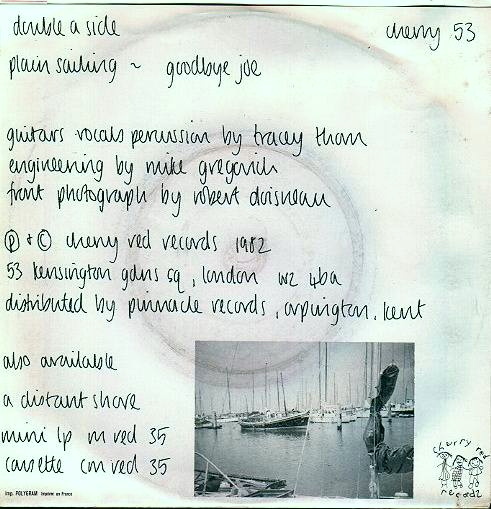 double a side
cherry 53
plain sailing ~ goodbye joe
guitars vocals percussion by tracey thorn
engineering by mike gregovich
front photograph by robert doisneau
Ⓟ + © cherry red records 1982
53 kensington gdns sq, london w2 4ba
distributed by pinnacle records, orpington, kent
also available
a distant shore
mini lp m red 35
cassette cm red 35
Imp. POLYGRAM Imprimé en France
cherry red
records